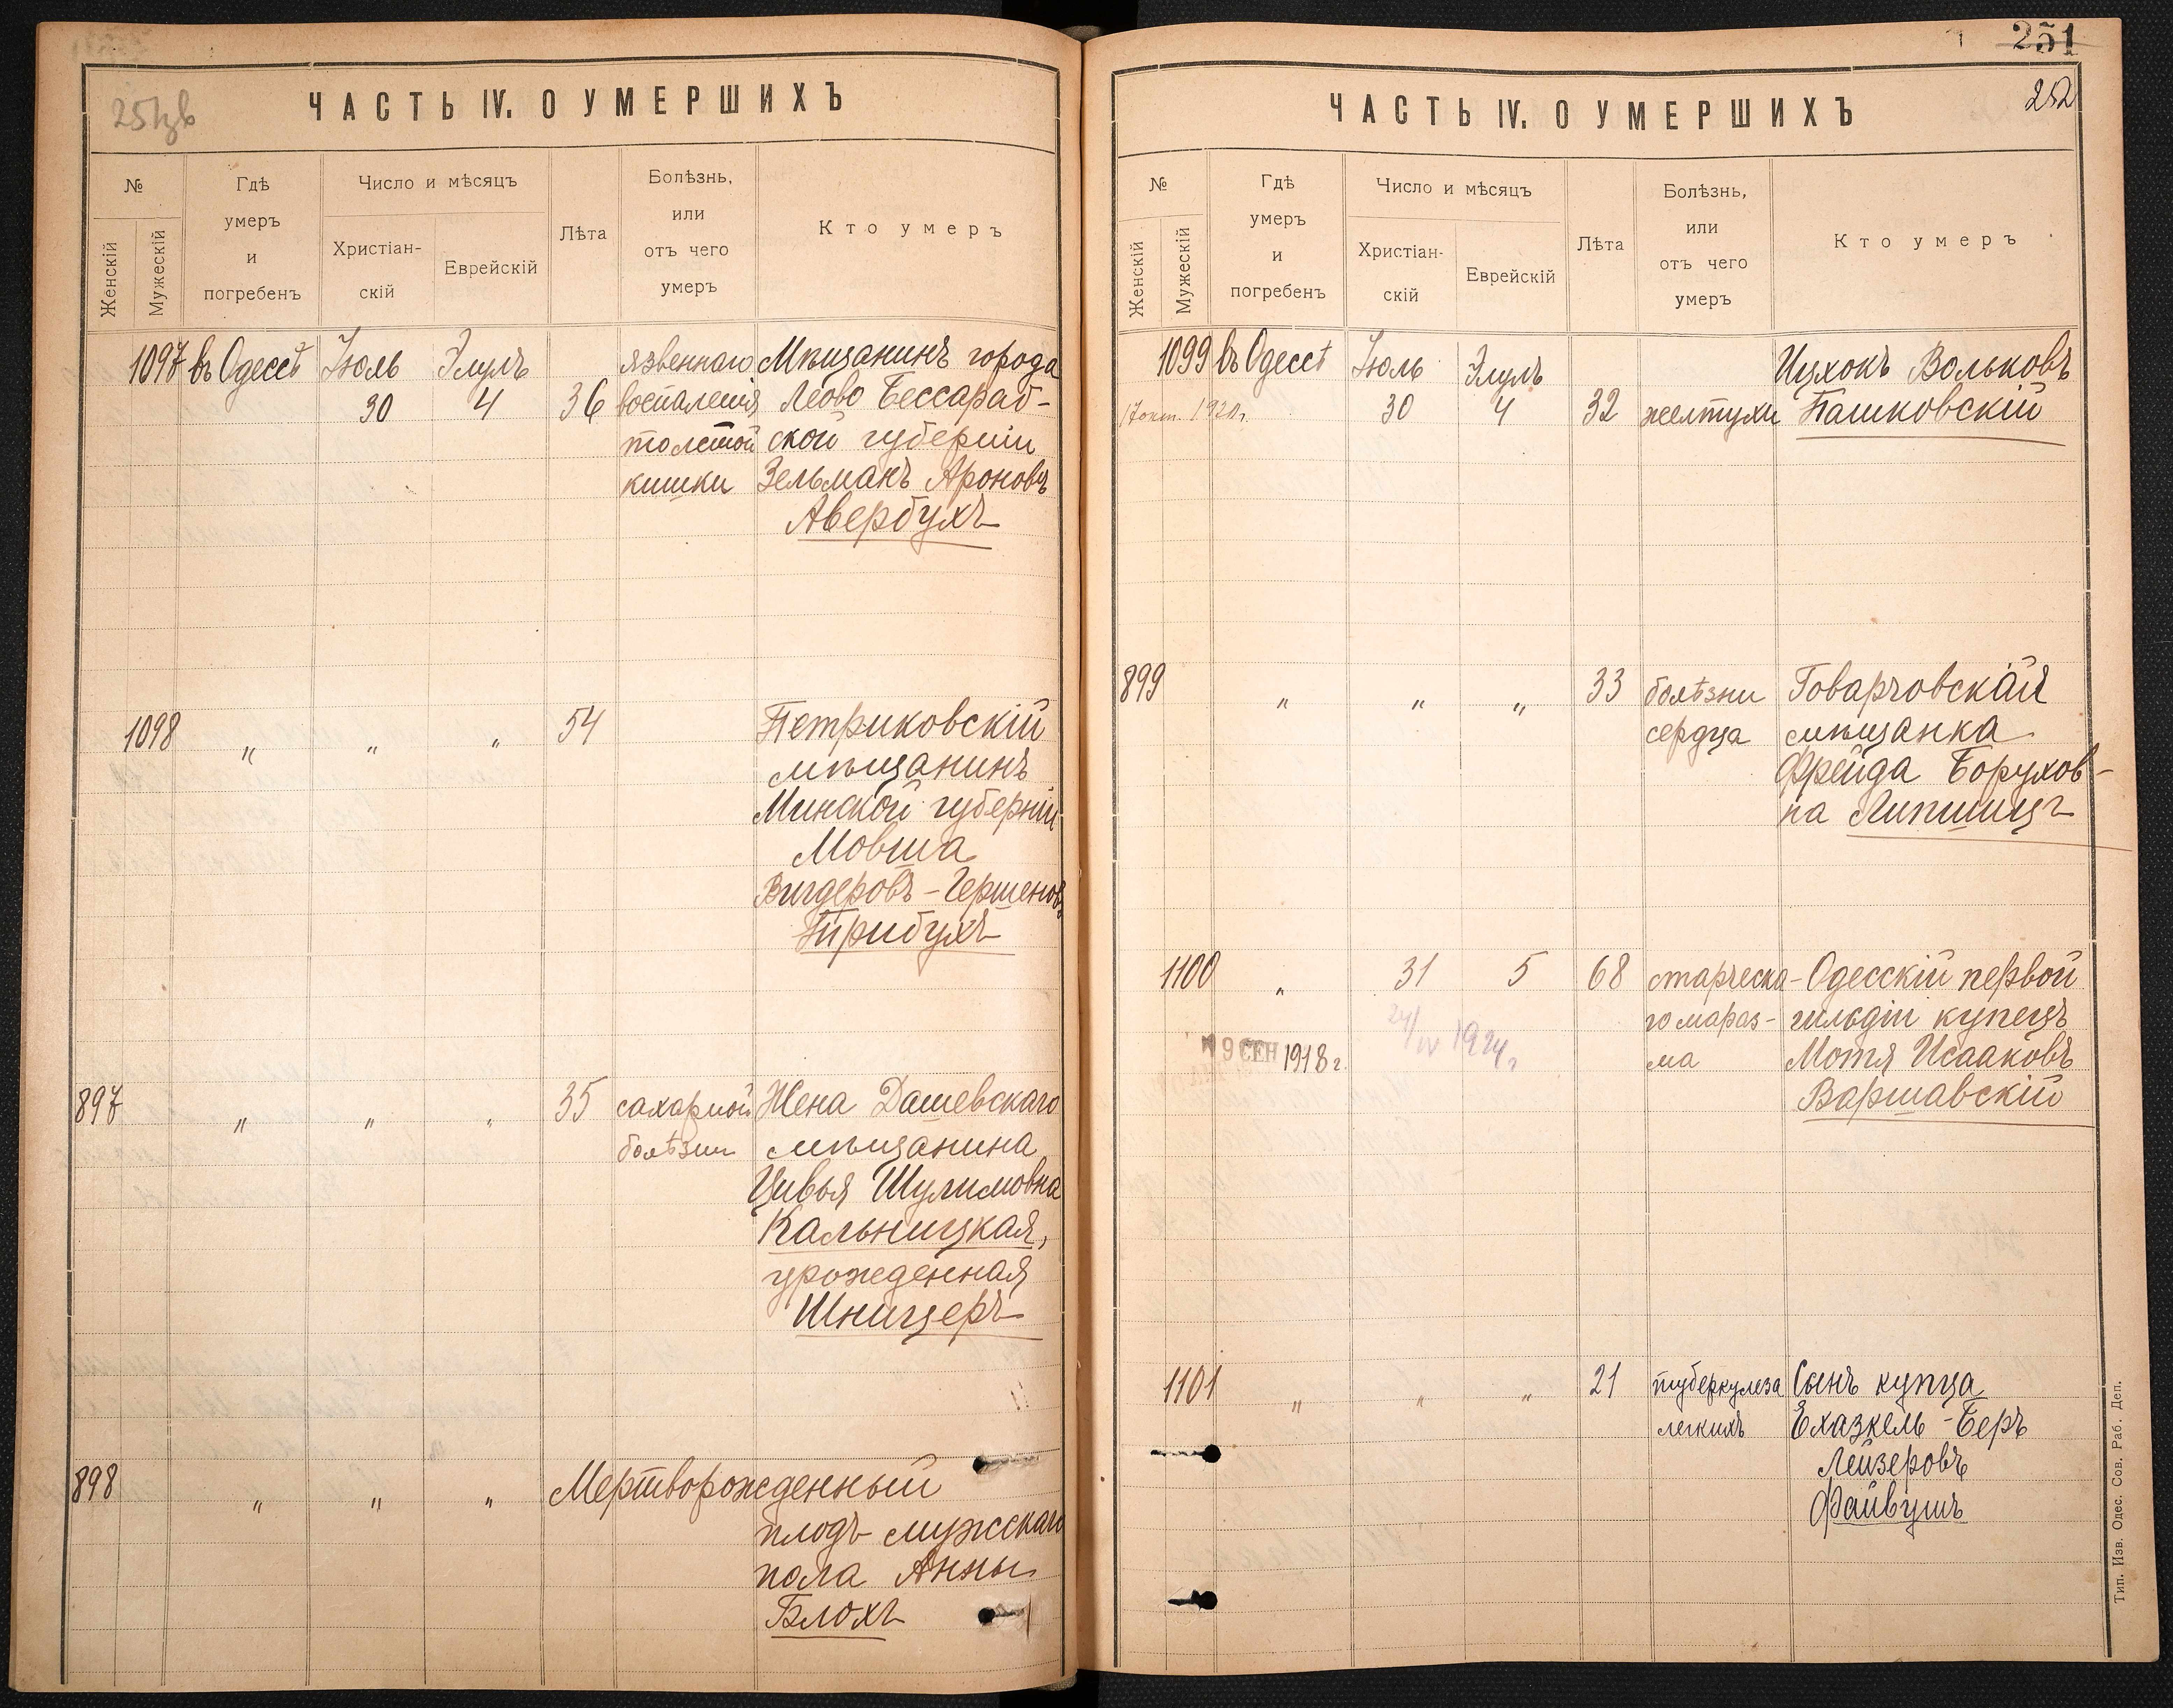 ЧАСТЬ IV. О УМЕРШИХЪ
№
Женскій
Мужескій
Гдѣ
умеръ
и
погребенъ
Число и мѣсяцъ
Христіан-
скій
Еврейскій
Лѣта
Болѣзнь,
или
отъ чего
умеръ
Кто умеръ
1097 въ Одессѣ Іюль Элулъ язвеннаго Мѣщанинъ города
30 4 36 воспаленія Леово Бессараб-
толстой ской губерніи
кишки Зельманъ Ароновъ
Авербухъ
1098 " " " 54 Петриковскій
мѣщанинъ
Минской губерніи
Мовша
Вигдеровъ-Гершеновъ
Трибухъ
897 " " " 35 сахарной Жена Дашевскаго
болѣзни мѣщанина
Цивья Шулимовна
Кальницкая,
урожденная
Шницеръ
898 " " " Мертворожденный
плодъ мужскаго
пола Анны
Блохъ
251
252
ЧАСТЬ IV. О УМЕРШИХЪ
№
Женскій
Мужескій
Гдѣ
умеръ
и
погребенъ
Число и мѣсяцъ
Христіан-
скій
Еврейскій
Лѣта
Болѣзнь,
или
отъ чего
умеръ
Кто умеръ
1099 въ Одессѣ Іюль Элулъ Ицхокъ Вольковъ
30 4 32 желтухи Пашковскій
899 " " " 33 болѣзни Говарчовская
сердца мѣщанка
Фрейда Борухов-
на Липшицъ
1100 " 31 5 68 старческа- Одесскій первой
го мараз- гильдіи купецъ
ма Мотя Исааковъ
9 СЕН 1918 г.
Варшавскій
1101 " " " 21 туберкулеза Сынъ купца
легкихъ Ехазкель-Беръ
Лейзеровъ
Файвушъ
Тип. Изв. Одес. Сов. Раб. Деп.